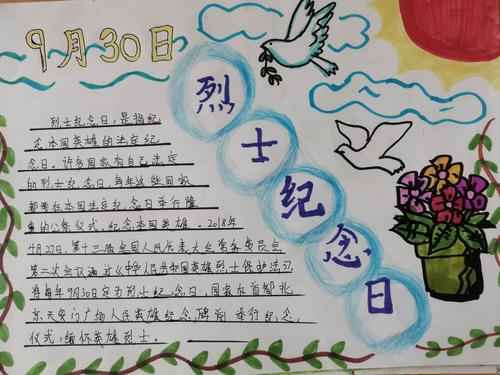 9月30日
烈士纪念日
烈士纪念日,是指纪
念本国英雄的法定纪
念日。许多国家有自己法定
的烈士纪念日,每年这些国家
都要在本国法定纪念日举行隆
重的公祭仪式,纪念本国英雄。2018年
4月27日,第十三届全国人民代表大会常务委员会
第二次会议通过《中华人民共和国英雄烈士保护法》
将每年9月30日定为烈士纪念日,国家在首都北
京天安门广场人民英雄纪念碑前举行纪念
仪式,缅怀英雄烈士。